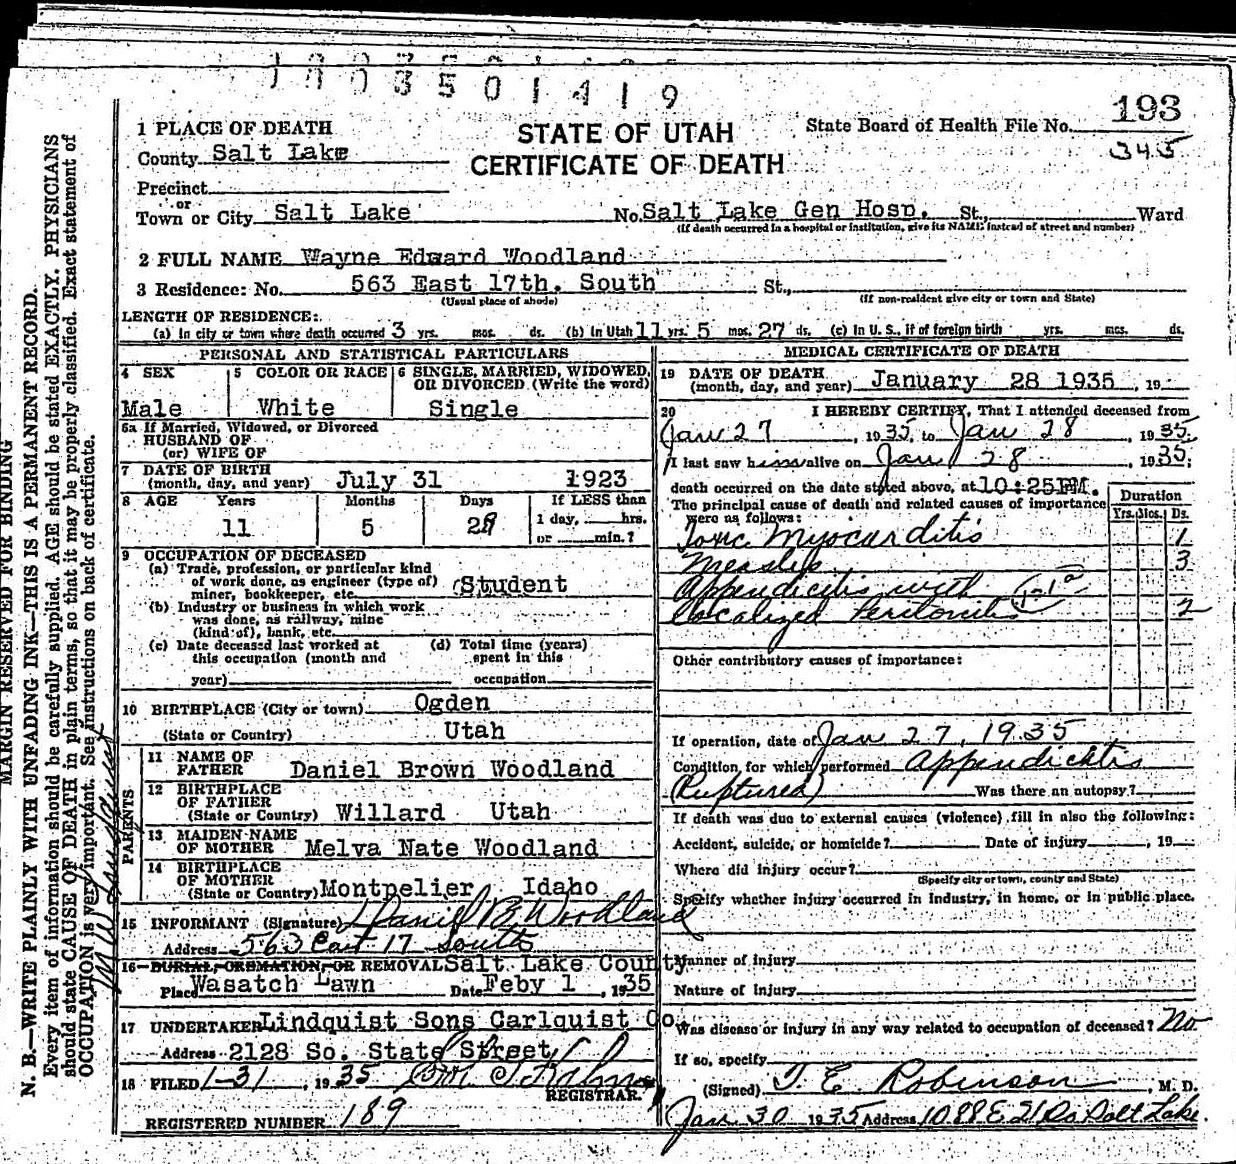 3 5 0 1 4 1 9
193
345
STATE OF UTAH
CERTIFICATE OF DEATH
State Board of Health File No.
1 PLACE OF DEATH
County Salt Lake
Precinct
or
Town or City Salt Lake No. Salt Lake Gen Hosp. St., Ward
(If death occurred in a hospital or institution, give its NAME instead of street and number)
2 FULL NAME Wayne Edward Woodland
3 Residence: No. 563 East 17th. South St.,
(Usual place of abode) (If non-resident give city or town and State)
LENGTH OF RESIDENCE:
(a) In city or town where death occurred 3 yrs. mos. ds. (b) In Utah 11 yrs. 5 mos. 27 ds. (c) In U. S., if of foreign birth yrs. mos. ds.
PERSONAL AND STATISTICAL PARTICULARS
4 SEX 5 COLOR OR RACE 6 SINGLE, MARRIED, WIDOWED, OR DIVORCED (Write the word)
Male White Single
6a If Married, Widowed, or Divorced
HUSBAND OF
(or) WIFE OF
7 DATE OF BIRTH
(month, day, and year) July 31 1923
8 AGE Years Months Days If LESS than
11 5 28 1 day, hrs.
or min.?
9 OCCUPATION OF DECEASED
(a) Trade, profession, or particular kind
of work done, as engineer (type of)
miner, bookkeeper, etc. Student
(b) Industry or business in which work
was done, as railway, mine
(kind of), bank, etc.
(c) Date deceased last worked at (d) Total time (years)
this occupation (month and spent in this
year) occupation
10 BIRTHPLACE (City or town) Ogden
(State or Country) Utah
PARENTS
11 NAME OF
FATHER Daniel Brown Woodland
12 BIRTHPLACE
OF FATHER
(State or Country) Willard Utah
13 MAIDEN NAME
OF MOTHER Melva Nate Woodland
14 BIRTHPLACE
OF MOTHER
(State or Country) Montpelier Idaho
15 INFORMANT (Signature) Daniel B Woodland
Address 563 East 17 South
16 BURIAL, CREMATION, OR REMOVAL Salt Lake County
Place Wasatch Lawn Date Feby 1, 1935
17 UNDERTAKER Lindquist Sons Carlquist Co.
Address 2128 So. State Street
18 FILED 1-31, 1935
REGISTRAR.
REGISTERED NUMBER 189
MEDICAL CERTIFICATE OF DEATH
19 DATE OF DEATH
(month, day, and year) January 28 1935, 19
20 I HEREBY CERTIFY, That I attended deceased from
Jan 27, 1935, to Jan 28, 1935.
I last saw him alive on Jan 28, 1935;
death occurred on the date stated above, at 10:25PM.
The principal cause of death and related causes of importance
were as follows: Duration
Yrs. Mos. Ds.
Toxic Myocarditis 1
Measles 3
Appendicitis with
localized Peritonitis 2
Other contributory causes of importance:
If operation, date of Jan 27, 1935
Condition for which performed Appendicitis
(Ruptured) Was there an autopsy?
If death was due to external causes (violence) fill in also the following:
Accident, suicide, or homicide? Date of injury, 19
Where did injury occur?
(Specify city or town, county and State)
Specify whether injury occurred in industry, in home, or in public place.
Manner of injury
Nature of injury
Was disease or injury in any way related to occupation of deceased? No
If so, specify
(Signed) T. E. Robinson, M. D.
Jan 30 1935 Address 1088 E 21 So Salt Lake.
MARGIN RESERVED FOR BINDING
N. B.—WRITE PLAINLY WITH UNFADING INK—THIS IS A PERMANENT RECORD.
Every item of information should be carefully supplied. AGE should be stated EXACTLY. PHYSICIANS
should state CAUSE OF DEATH in plain terms, so that it may be properly classified. Exact statement of
OCCUPATION is very important. See instructions on back of certificate.